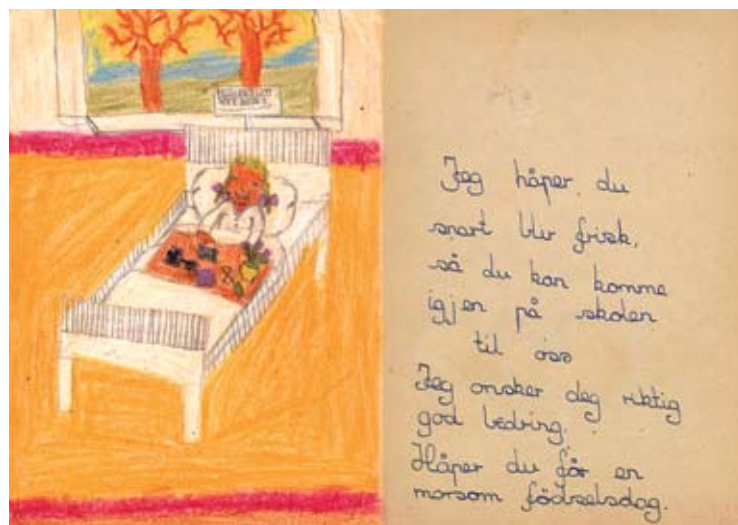 Jeg håper du
snart blir frisk,
så du kan komme
igjen på skolen
til oss
Jeg onsker deg riktig
god bedring.
Håper du får en
morsom födselsdag.